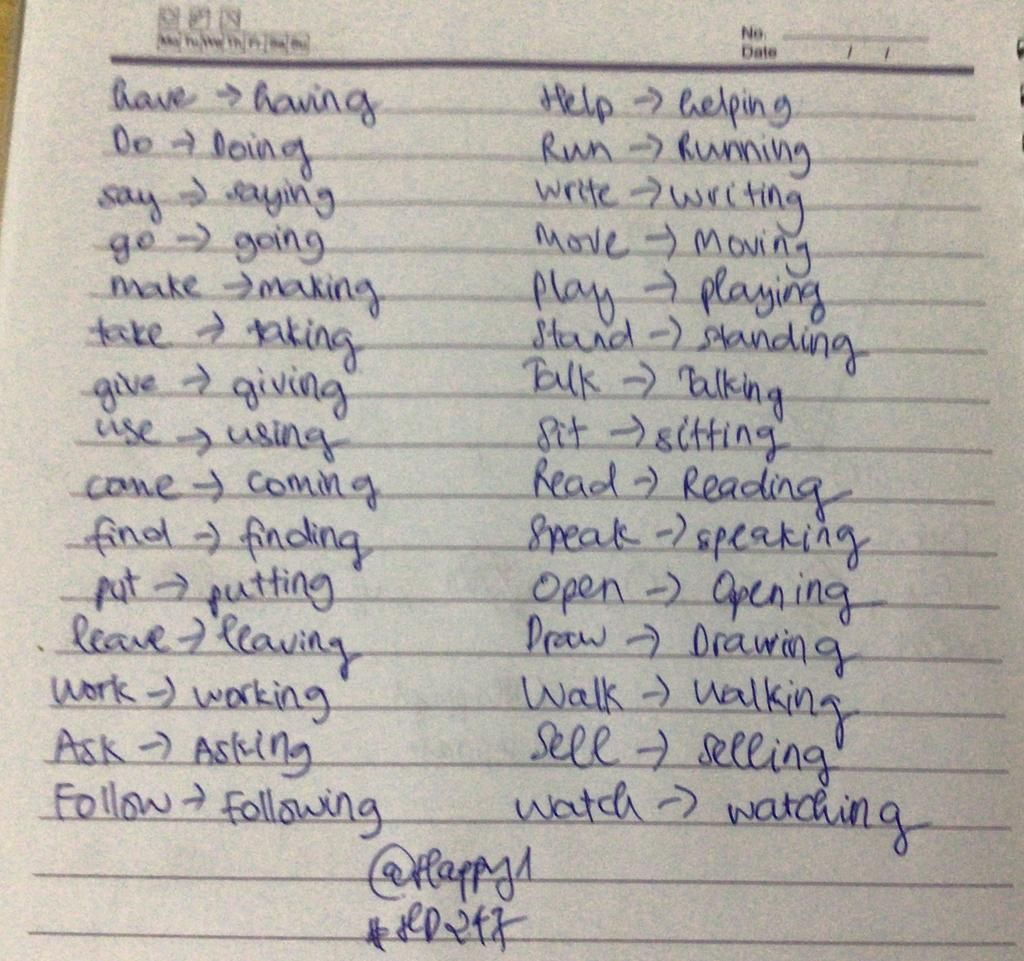 Mo Tu We Th Fr Sa Su
No.
Date / /
have → having
Do → Doing
say → saying
go → going
make → making
take → taking
give → giving
use → using
come → coming
find → finding
put → putting
leave → leaving
Work → working
Ask → Asking
Follow → Following
Help → helping
Run → Running
Write → writing
Move → Moving
Play → playing
Stand → standing
Talk → Talking
Sit → sitting
Read → Reading
Speak → speaking
Open → Opening
Draw → Drawing
Walk → Walking
Sell → Selling
Watch → watching
@Happy1